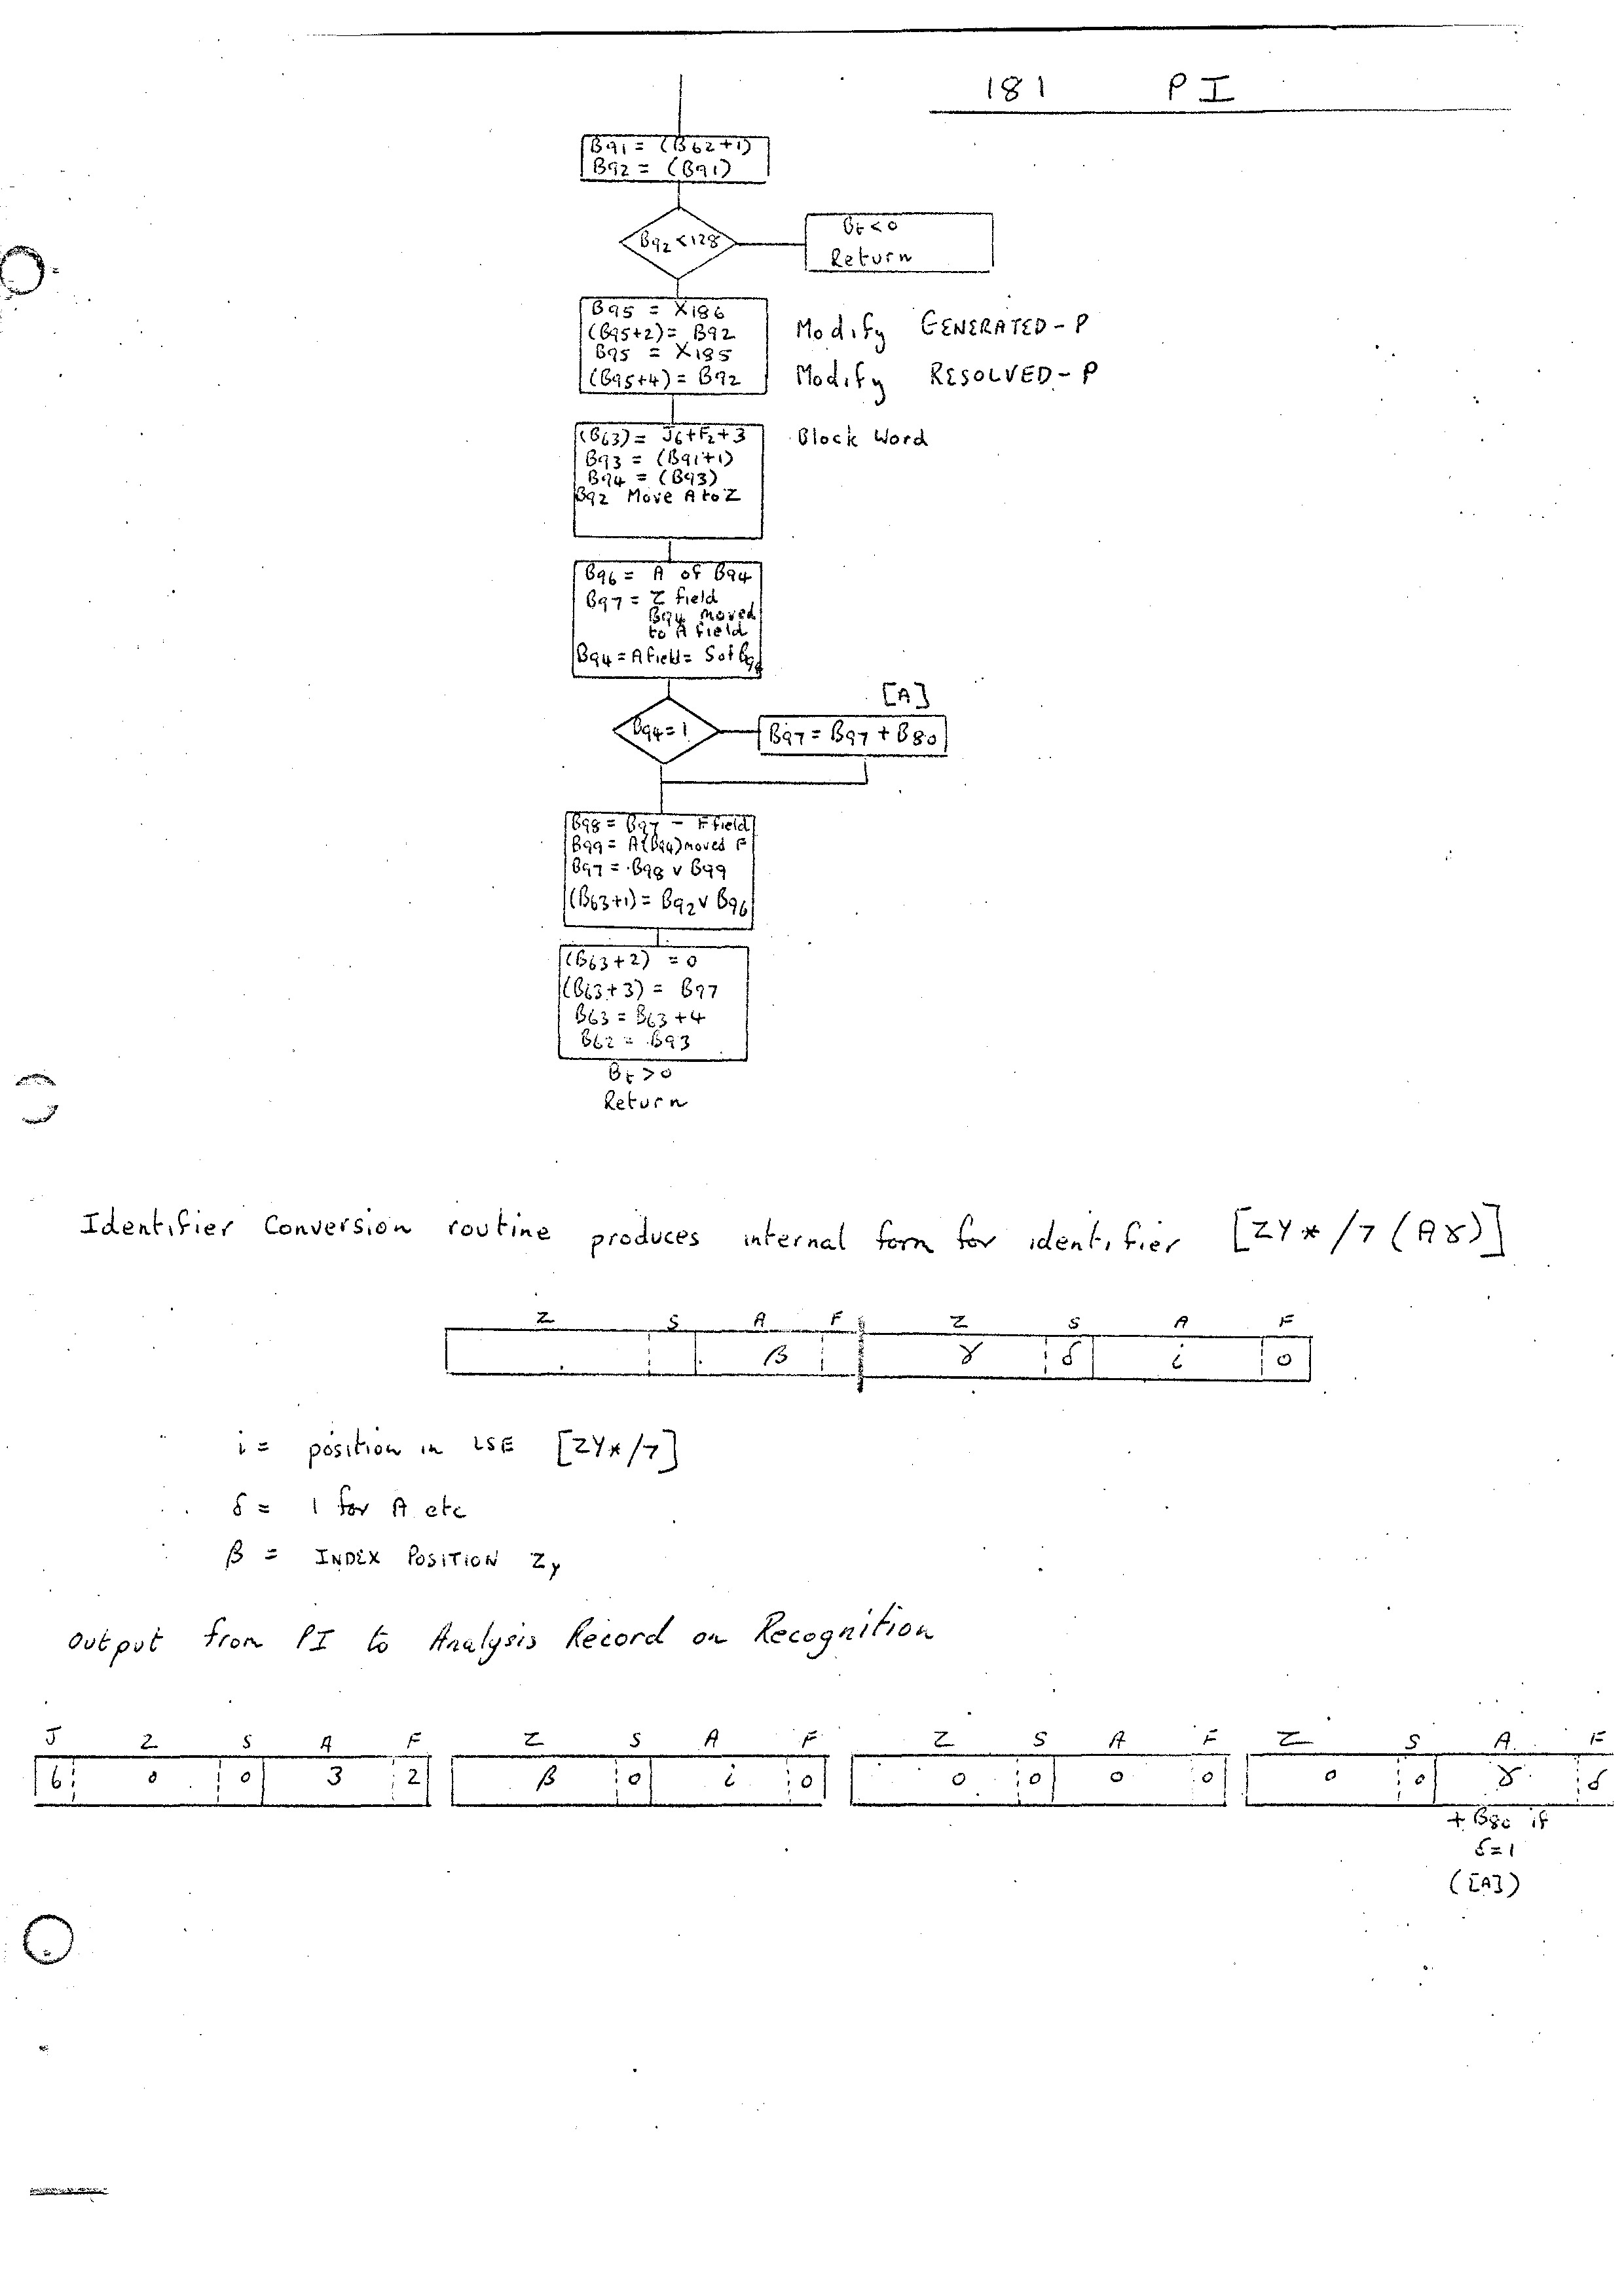 181 PI
B91 = (B62+1)
B92 = (B91)
B92 < 128
Bt < 0
Return
B95 = X186
(B95+2) = B92
B95 = X185
(B95+4) = B92
Modify GENERATED-P
Modify RESOLVED-P
(B63) = J6+F2+3
B93 = (B91+1)
B94 = (B93)
B92 Move A to Z
Block Word
B96 = A of B94
B97 = Z field
B94 moved
to A field
B94 = A field = S of
B94=1
[A]
B97 = B97 + B80
B98 = B97 - F field
B99 = A(B94) moved F
B97 = B98 v B99
(B63+1) = B92 v B96
(B63+2) = 0
(B63+3) = B97
B63 = B63+4
B62 = B93
Bt > 0
Return
Identifier Conversion routine produces internal form for identifier [ZY*/7(Aγ)]
Z S A F Z S A F
β γ δ i 0
i = position in LSE [ZY*/7]
δ = 1 for A etc
β = INDEX POSITION Zy
Output from PI to Analysis Record on Recognition
J Z S A F Z S A F Z S A F Z S A F
6 0 0 3 2 β 0 i 0 0 0 0 0 0 0 γ δ
+ B80 if
δ=1
([A])